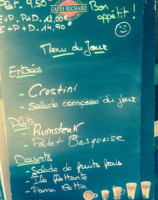 P+F. 9,50
CAFÉS RICHARD
Bon
appétit !
E+P+D. 12,00€
E+P+D. 14,90€
Menu du Jour
Entrées
- Crostini
- Salade composée du jour
Plats
- Rumsteak
- Poulet Basquaise
Desserts
- Salade de fruits frais
- Île flottante
- Panna Cotta